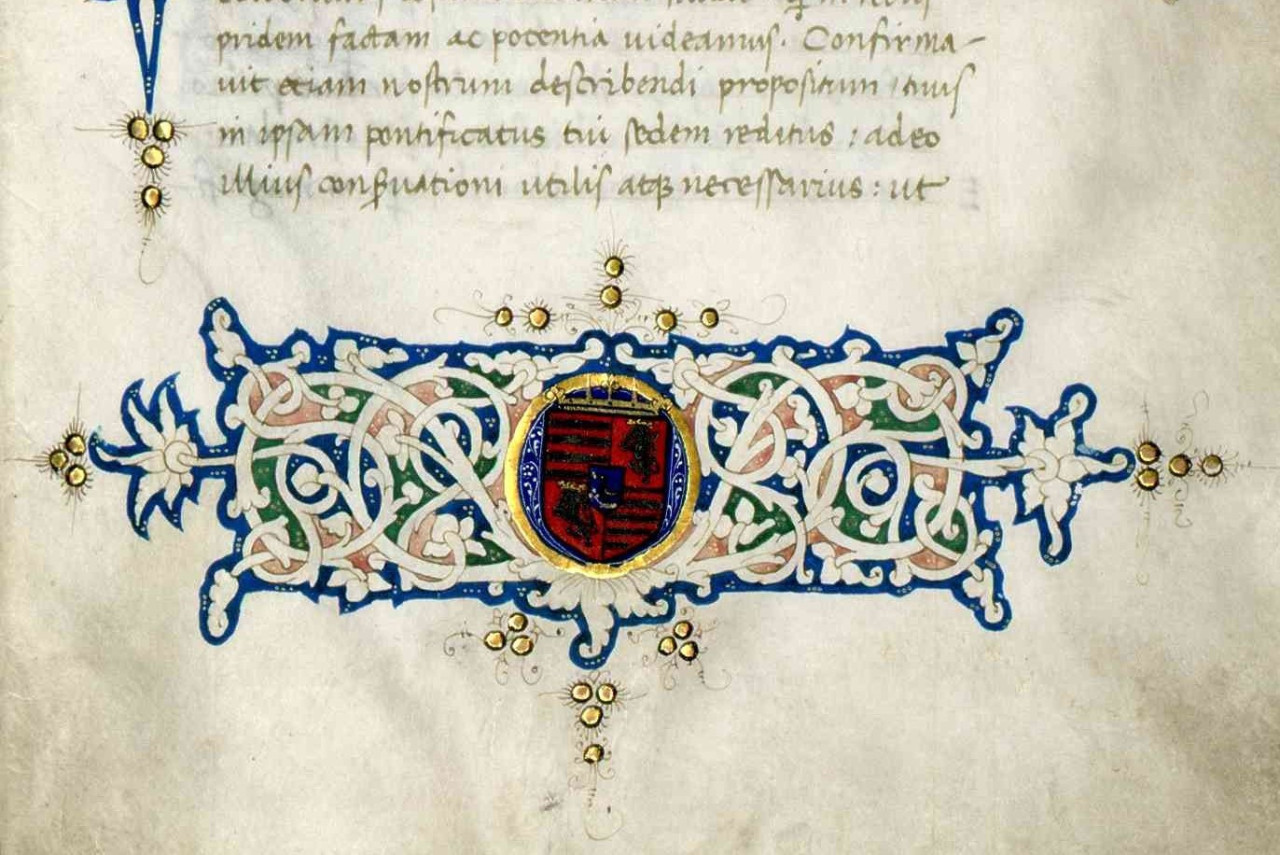 pridem factam ac potentia uideamus. Confirma-
uit etiam nostrum describendi propositum tuus
in ipsam pontificatus tui sedem reditus: adeo
illius conseruationi utilis atque necessarius: ut